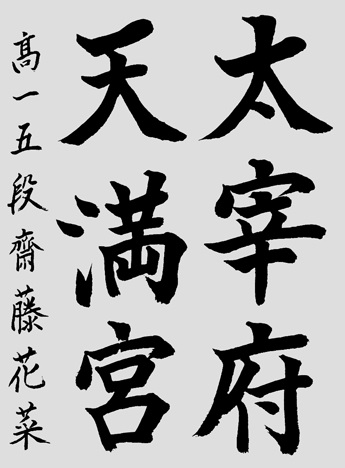 太宰府
天満宮
高一五段齋藤花菜